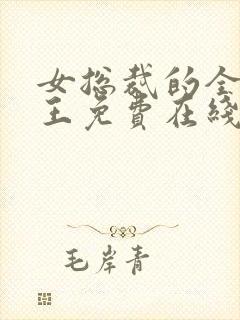 女总裁的全
王免费在綫
毛岸青